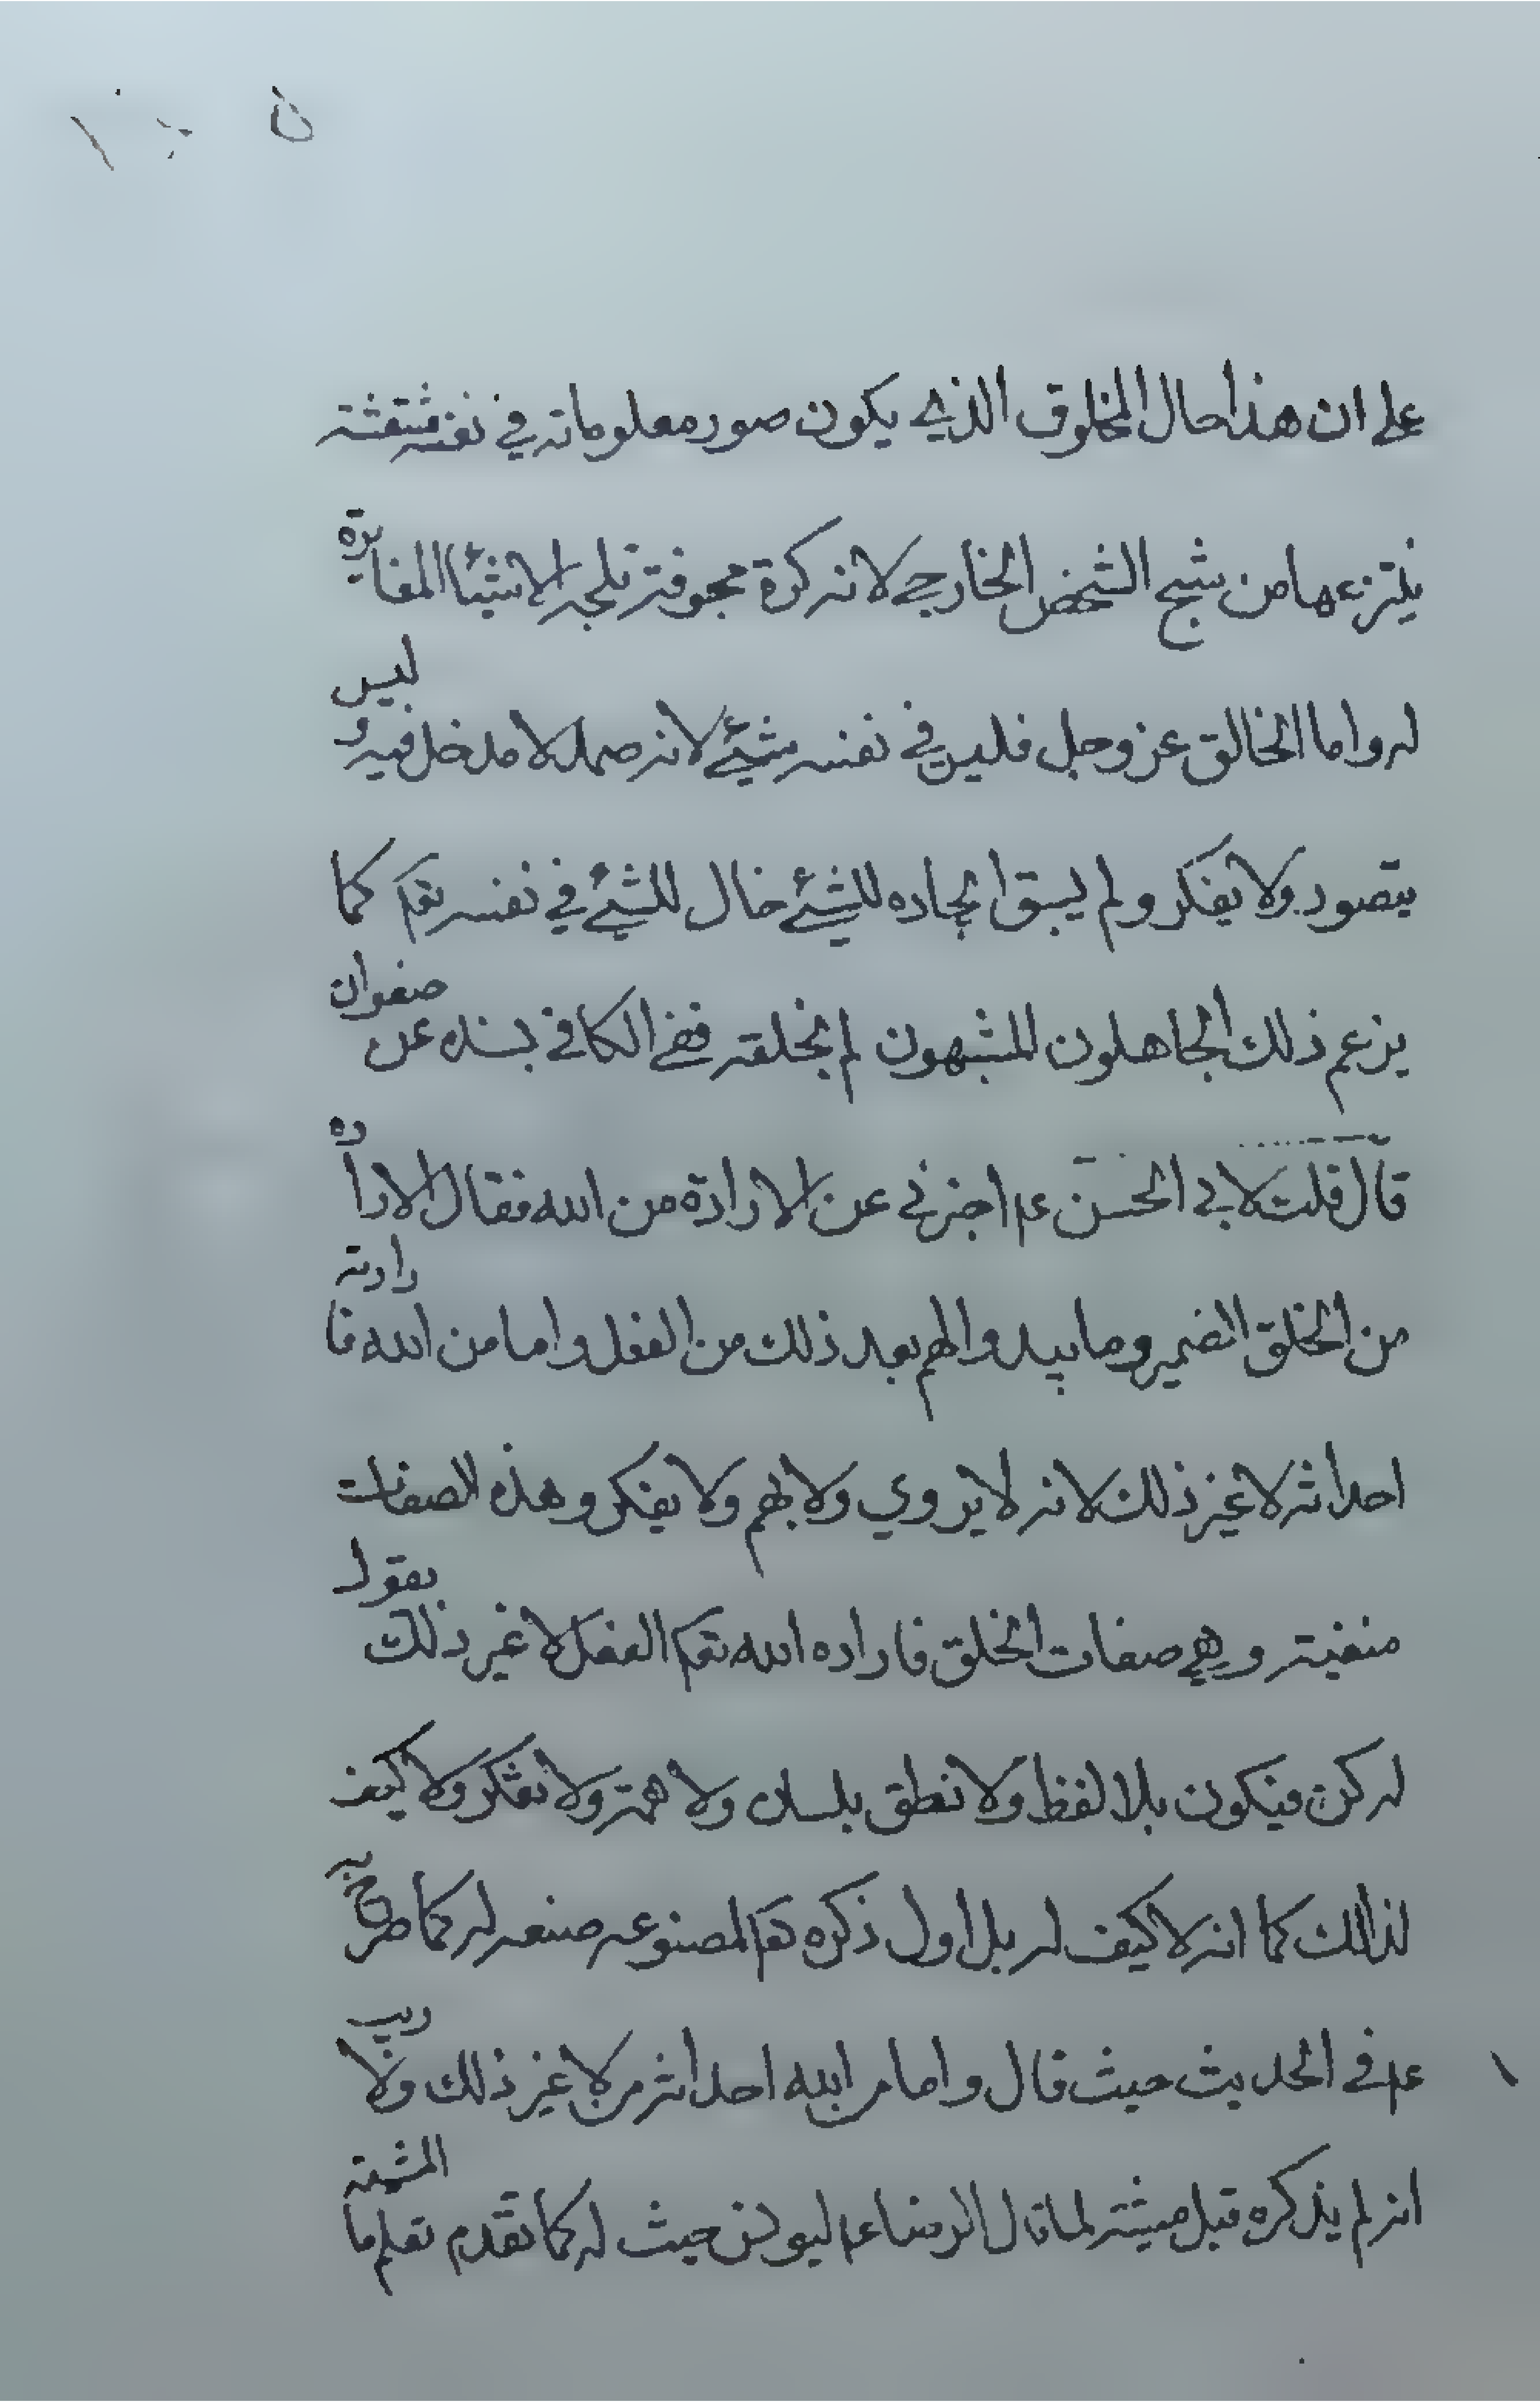 على ان هذا حال المخلوق الذي يكون صور معلوماته في نفسه منتقشة
ينتزعها من شبح الشخص الخارجي لانه كرة مجوفة تلجه الاشياء المغايرة
له واما الخالق عز وجل فليس في نفسه شيء لانه صمد لا مدخل فيه وليس
يتصور ولا يفكر ولم يسبق ايجاده للشيء خال للشيء في نفسه تعم كما
يزعم ذلك الجاهلون المشبهون لم بخلقه ففي الكافي بسنده عن صفوان
قال قلت لابي الحسن عم اخبرني عن الارادة من الله فقال الارادة
من الخلق الضمير وما يبدو الهم بعد ذلك من الفعل واما من الله فارادته
احداثه لا غير ذلك لانه لا يروي ولا يهم ولا يفكر وهذه الصفات
منفية وهي صفات الخلق فاراده الله تعم الفعل لا غير ذلك يقول
له كن فيكون بلا لفظ ولا نطق بلسان ولا همة ولا تفكر ولا كيف
لذلك كما انه لا كيف له بل اول ذكره تعم لمصنوعه صنعه له كما صرح به
عم في الحديث حيث قال واما من الله احداثه لا غير ذلك ولا ريب
انه لم يذكره قبل مشيته لما قال الرضا عم ليونس حيث له كما تقدم تعلم ما المشية